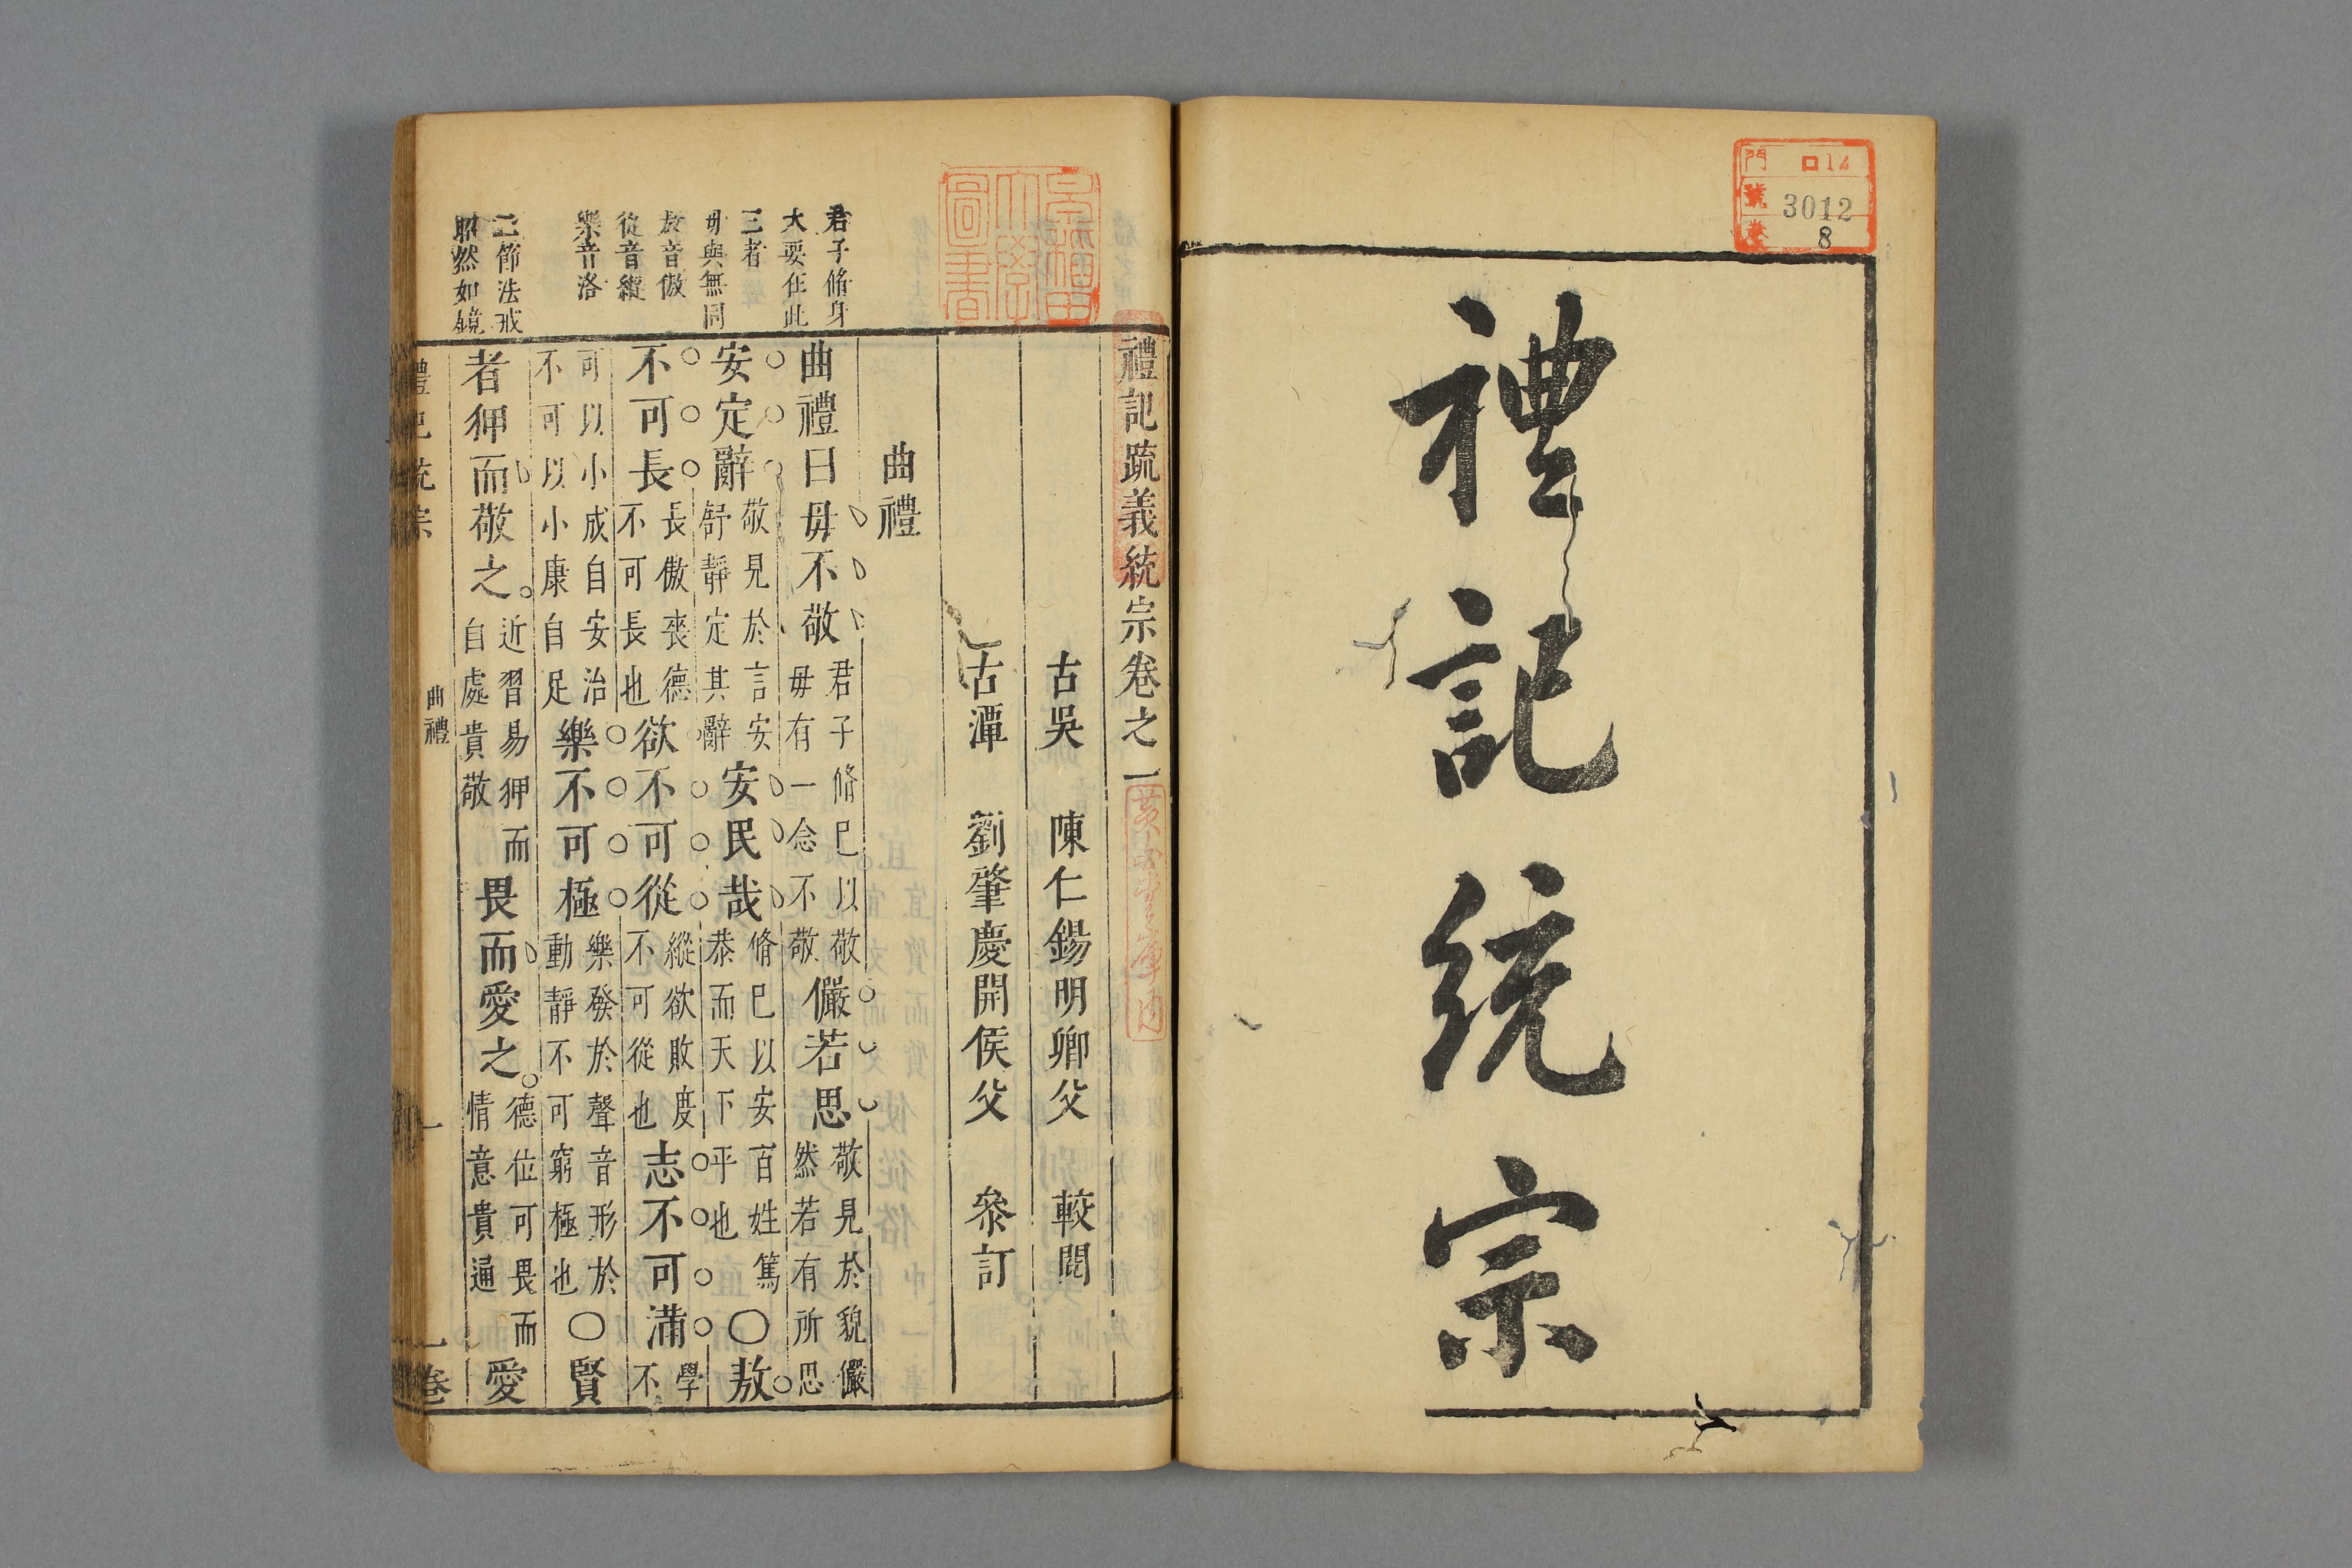 門 口12
號 3012
卷 8
禮記統宗
早稲田大學圖書
禮記疏義統宗卷之一
古吳 陳仁錫明卿父 較閱
古潭 劉肇慶開侯父 叅訂
曲禮
君子脩身
大要在此
三者
毋與無同
敖音傲
從音縱
樂音洛
二節法戒
昭然如鏡
曲禮曰毋不敬君子脩巳以敬毋有一念不敬儼若思敬見於貌儼然若有所思
安定辭敬見於言安舒靜定其辭安民哉脩巳以安百姓篤恭而天下平也〇敖
不可長長傲喪德不可長也欲不可從縱欲敗度不可從也志不可滿學不
可以小成自安治不可以小康自足樂不可極樂發於聲音形於動靜不可窮極也〇賢
者狎而敬之近習易狎而自處貴敬畏而愛之德位可畏而情意貴通愛
禮記統宗 曲禮 一 一卷